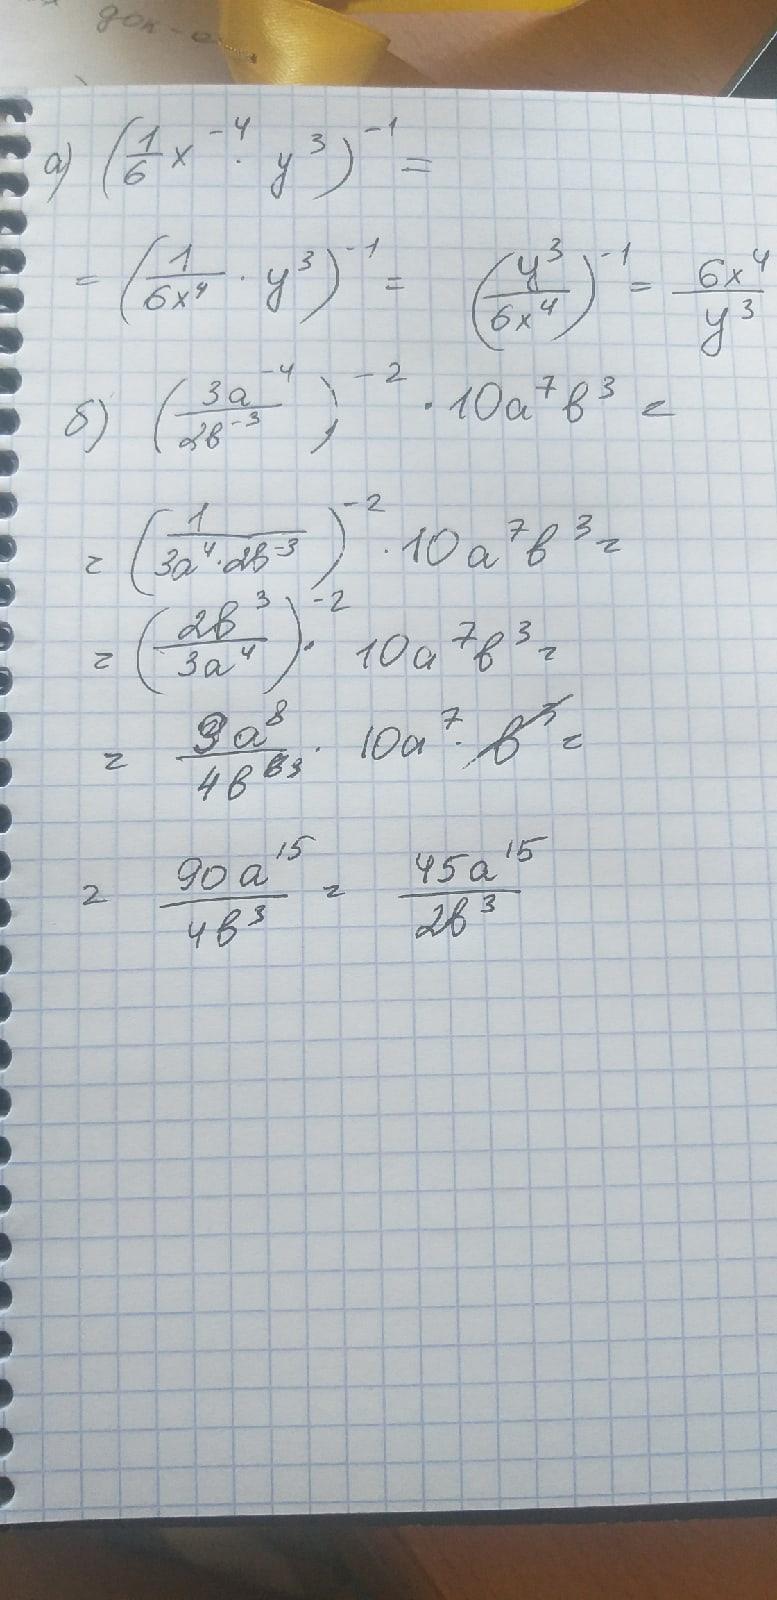 док-
а) (1/6 x^-4 · y^3)^-1 =
= (1/6x^4 · y^3)^-1 = (y^3/6x^4)^-1 = 6x^4/y^3
б) (3a^-4/2в^-3)^-2 · 10a^7в^3 =
= (1/3a^4·2в^-3)^-2 · 10a^7в^3 =
= (2в^3/3a^4)^-2 · 10a^7в^3 =
= 9a^8/4в^3 · 10a^7 · в^3 =
= 90a^15/4в^3 = 45a^15/2в^3